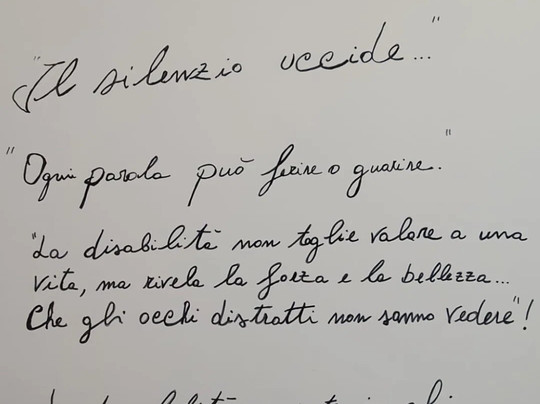 "Il silenzio uccide..."
"Ogni parola può ferire o guarire."
"La disabilità non toglie valore a una
vita, ma rivela la forza e la bellezza...
Che gli occhi distratti non sanno vedere"!